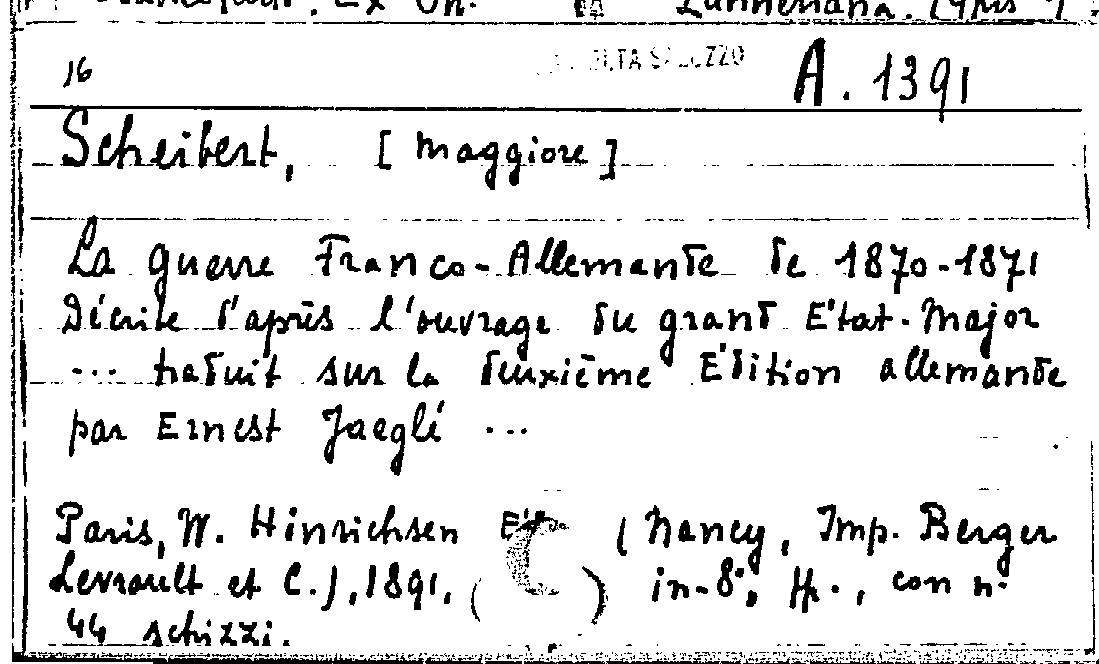 16 A. 1391
Scheibert, [Maggiore]
La guerre Franco-Allemande de 1870-1871
Décrite d'après l'ouvrage du grand Etat-Major
... traduit sur la deuxième Edition allemande
par Ernest Jaeglé ...
Paris, W. Hinrichsen (Nancy, Imp. Berger
Levrault et C.), 1891, in-8°, con n.
44 schizzi.